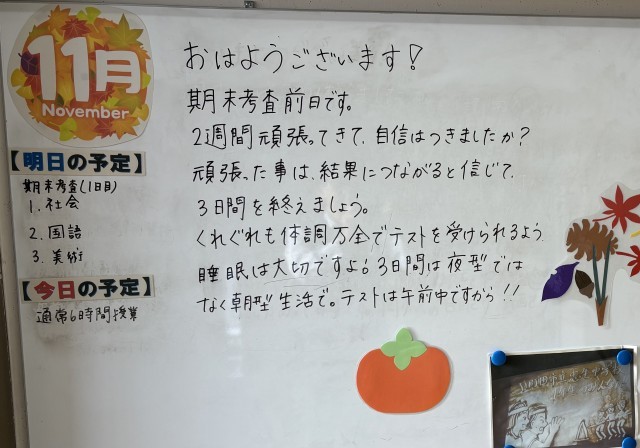 11月
November
【明日の予定】
期末考査(1日目)
1. 社会
2. 国語
3. 美術
【今日の予定】
通常6時間授業
おはようございます!
期末考査前日です。
2週間頑張ってきて、自信はつきましたか?
頑張った事は、結果につながると信じて、
3日間を終えましょう。
くれぐれも体調万全でテストを受けられるよう
睡眠は大切ですよ!3日間は夜型では
なく朝型生活で。テストは午前中ですから!!